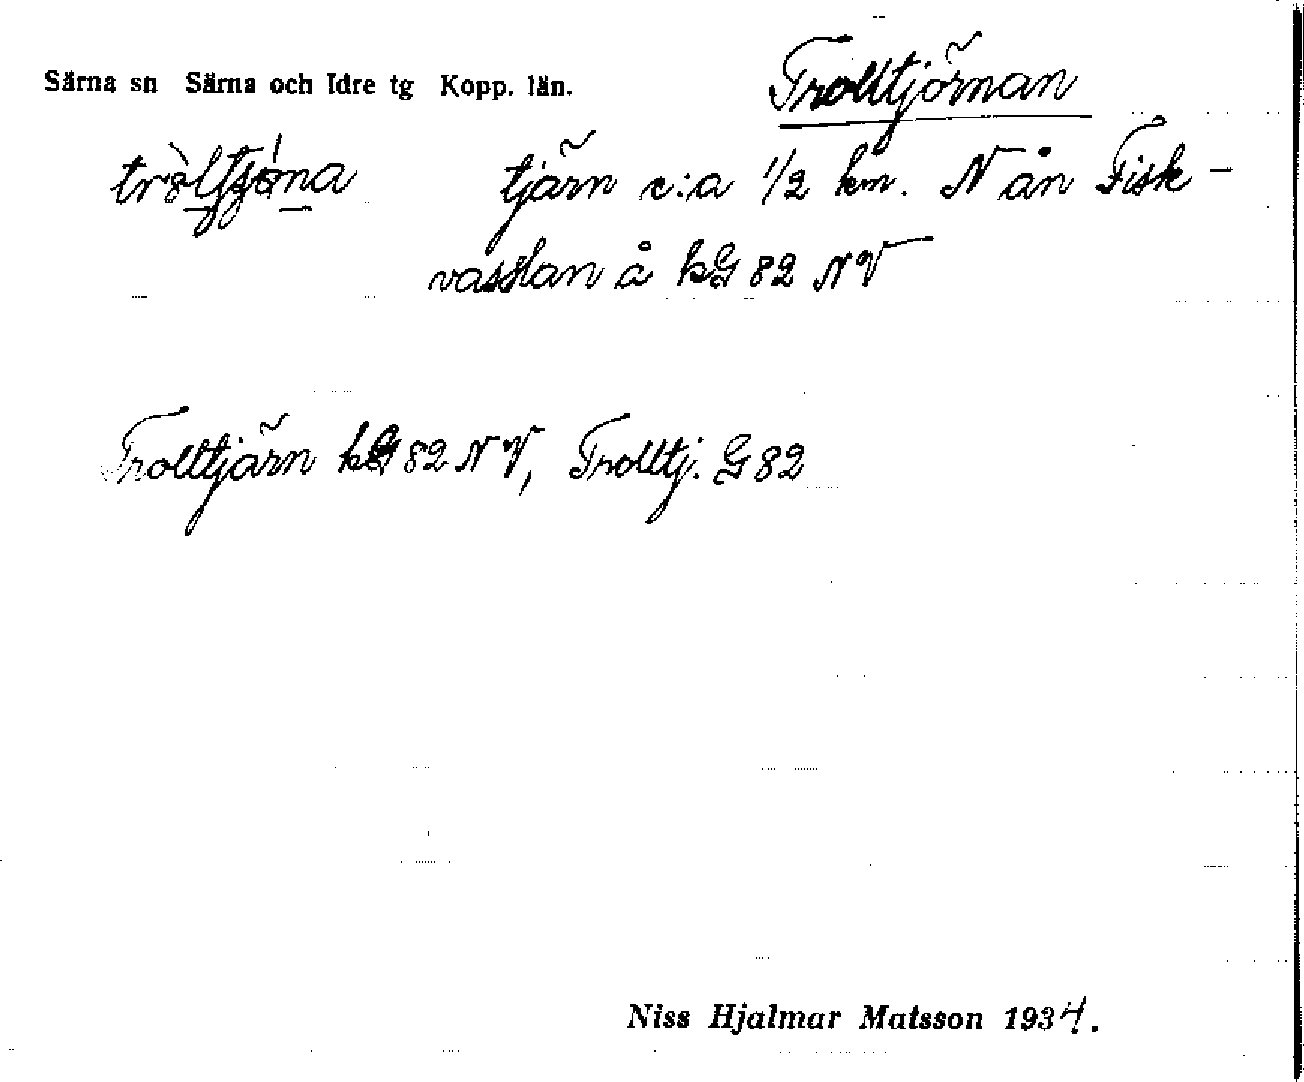 Särna sn Särna och Idre tg Kopp. län.
Trolltjörnan
tjärn c:a 1/2 km. N ån Fisk-
vasslan å kG 82 NV
Trolltjärn kG 82 NV, Trolltj. G 82
Niss Hjalmar Matsson 1934.